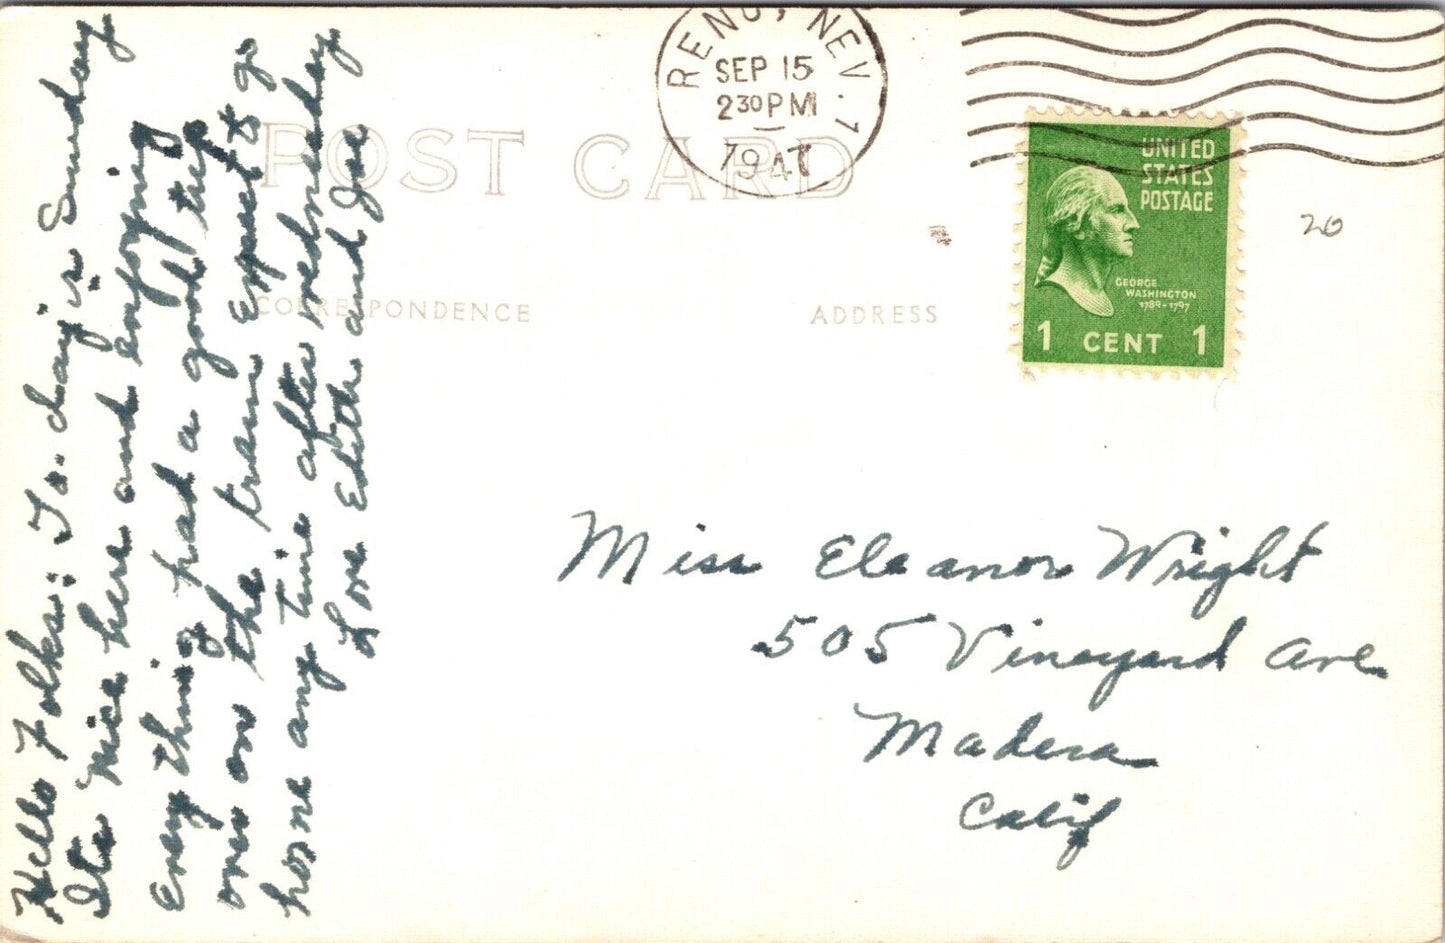 Hello Folks: To-day is Sunday
Its nice here and enjoying
Every thing had a good trip
over on the train Expect to go
home any time after wednesday
Love Edith and Joe
POST CARD
CORRESPONDENCE
ADDRESS
RENO, NEV. 1
SEP 15
2 30 PM
1947
UNITED
STATES
POSTAGE
GEORGE
WASHINGTON
1789-1797
1 CENT 1
20
Miss Eleanor Wright
505 Vineyard Ave
Madera
Calif